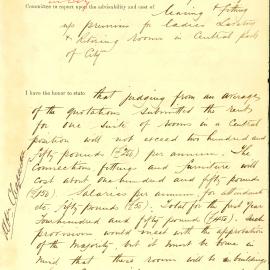 Committee to report upon the advisability and cost of leasing & fitting
up premises for Ladies Lavatory
& Retiring Rooms in Central part
of City
I have the honor to state: that judging from an average
of the quotations submitted the rent
for one suite of rooms in a Central
position will not exceed two hundred and
fifty pounds (£250) per annum. The
Connection fittings and furniture will
cost about one hundred and fifty pounds
(£150). Salaries per annum for attendants
Total for the first year
Four hundred and fifty pounds Such
provision would meet with the approbation
of the Majority but it must be borne in
mind that these rooms will be a building